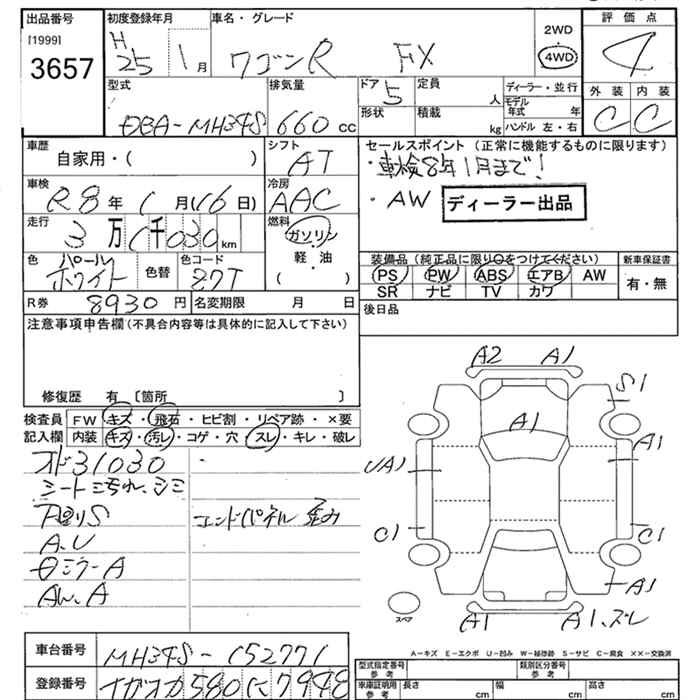 出品番号
[1999]
3657
初度登録年月
H25年1月
車名・グレード
ワゴンR FX
2WD
4WD
評価点
4
外装 内装
C C
型式
DBA-MH34S
排気量
660 cc
ドア 5
形状
定員 人
積載 kg
ディーラー・並行
モデル年式 年
ハンドル 左・右
車歴
自家用・( )
シフト
AT
セールスポイント (正常に機能するものに限ります)
・車検8年1月まで!
・AW
ディーラー出品
車検
R8年1月(16日)
冷房
AAC
走行
3万1千030km
燃料
ガソリン
軽・油
( )
色
パールホワイト
色替
色コード
Z7T
装備品 (純正品に限り○をつけてください)
PS PW ABS エアB AW
SR ナビ TV カワ
新車保証書
有・無
R券 8930円
名変期限 月 日
後日品
注意事項申告欄 (不具合内容等は具体的に記入して下さい)
修復歴 有 〔箇所 〕
検査員記入欄
FW キズ・飛石・ヒビ割・リペア跡・×要
内装 キズ・汚レ・コゲ・穴・スレ・キレ・破レ
オド31030
シートこちれ、シミ
下回りS
A.U
エンドパネル 歪み
ミラーA
AW.A
A2 A1
S1
A1
A1
UA1
C1
C1
A1
A1
A1.ズレ
スペア
A-キズ E-エクボ U-凹み W-補修跡 S-サビ C-腐食 ××-交換済
車台番号
MH34S-152771
登録番号
580 に 7948
型式指定番号 参考
類別区分番号 参考
車庫証明用 参考
長さ cm
幅 cm
高さ cm